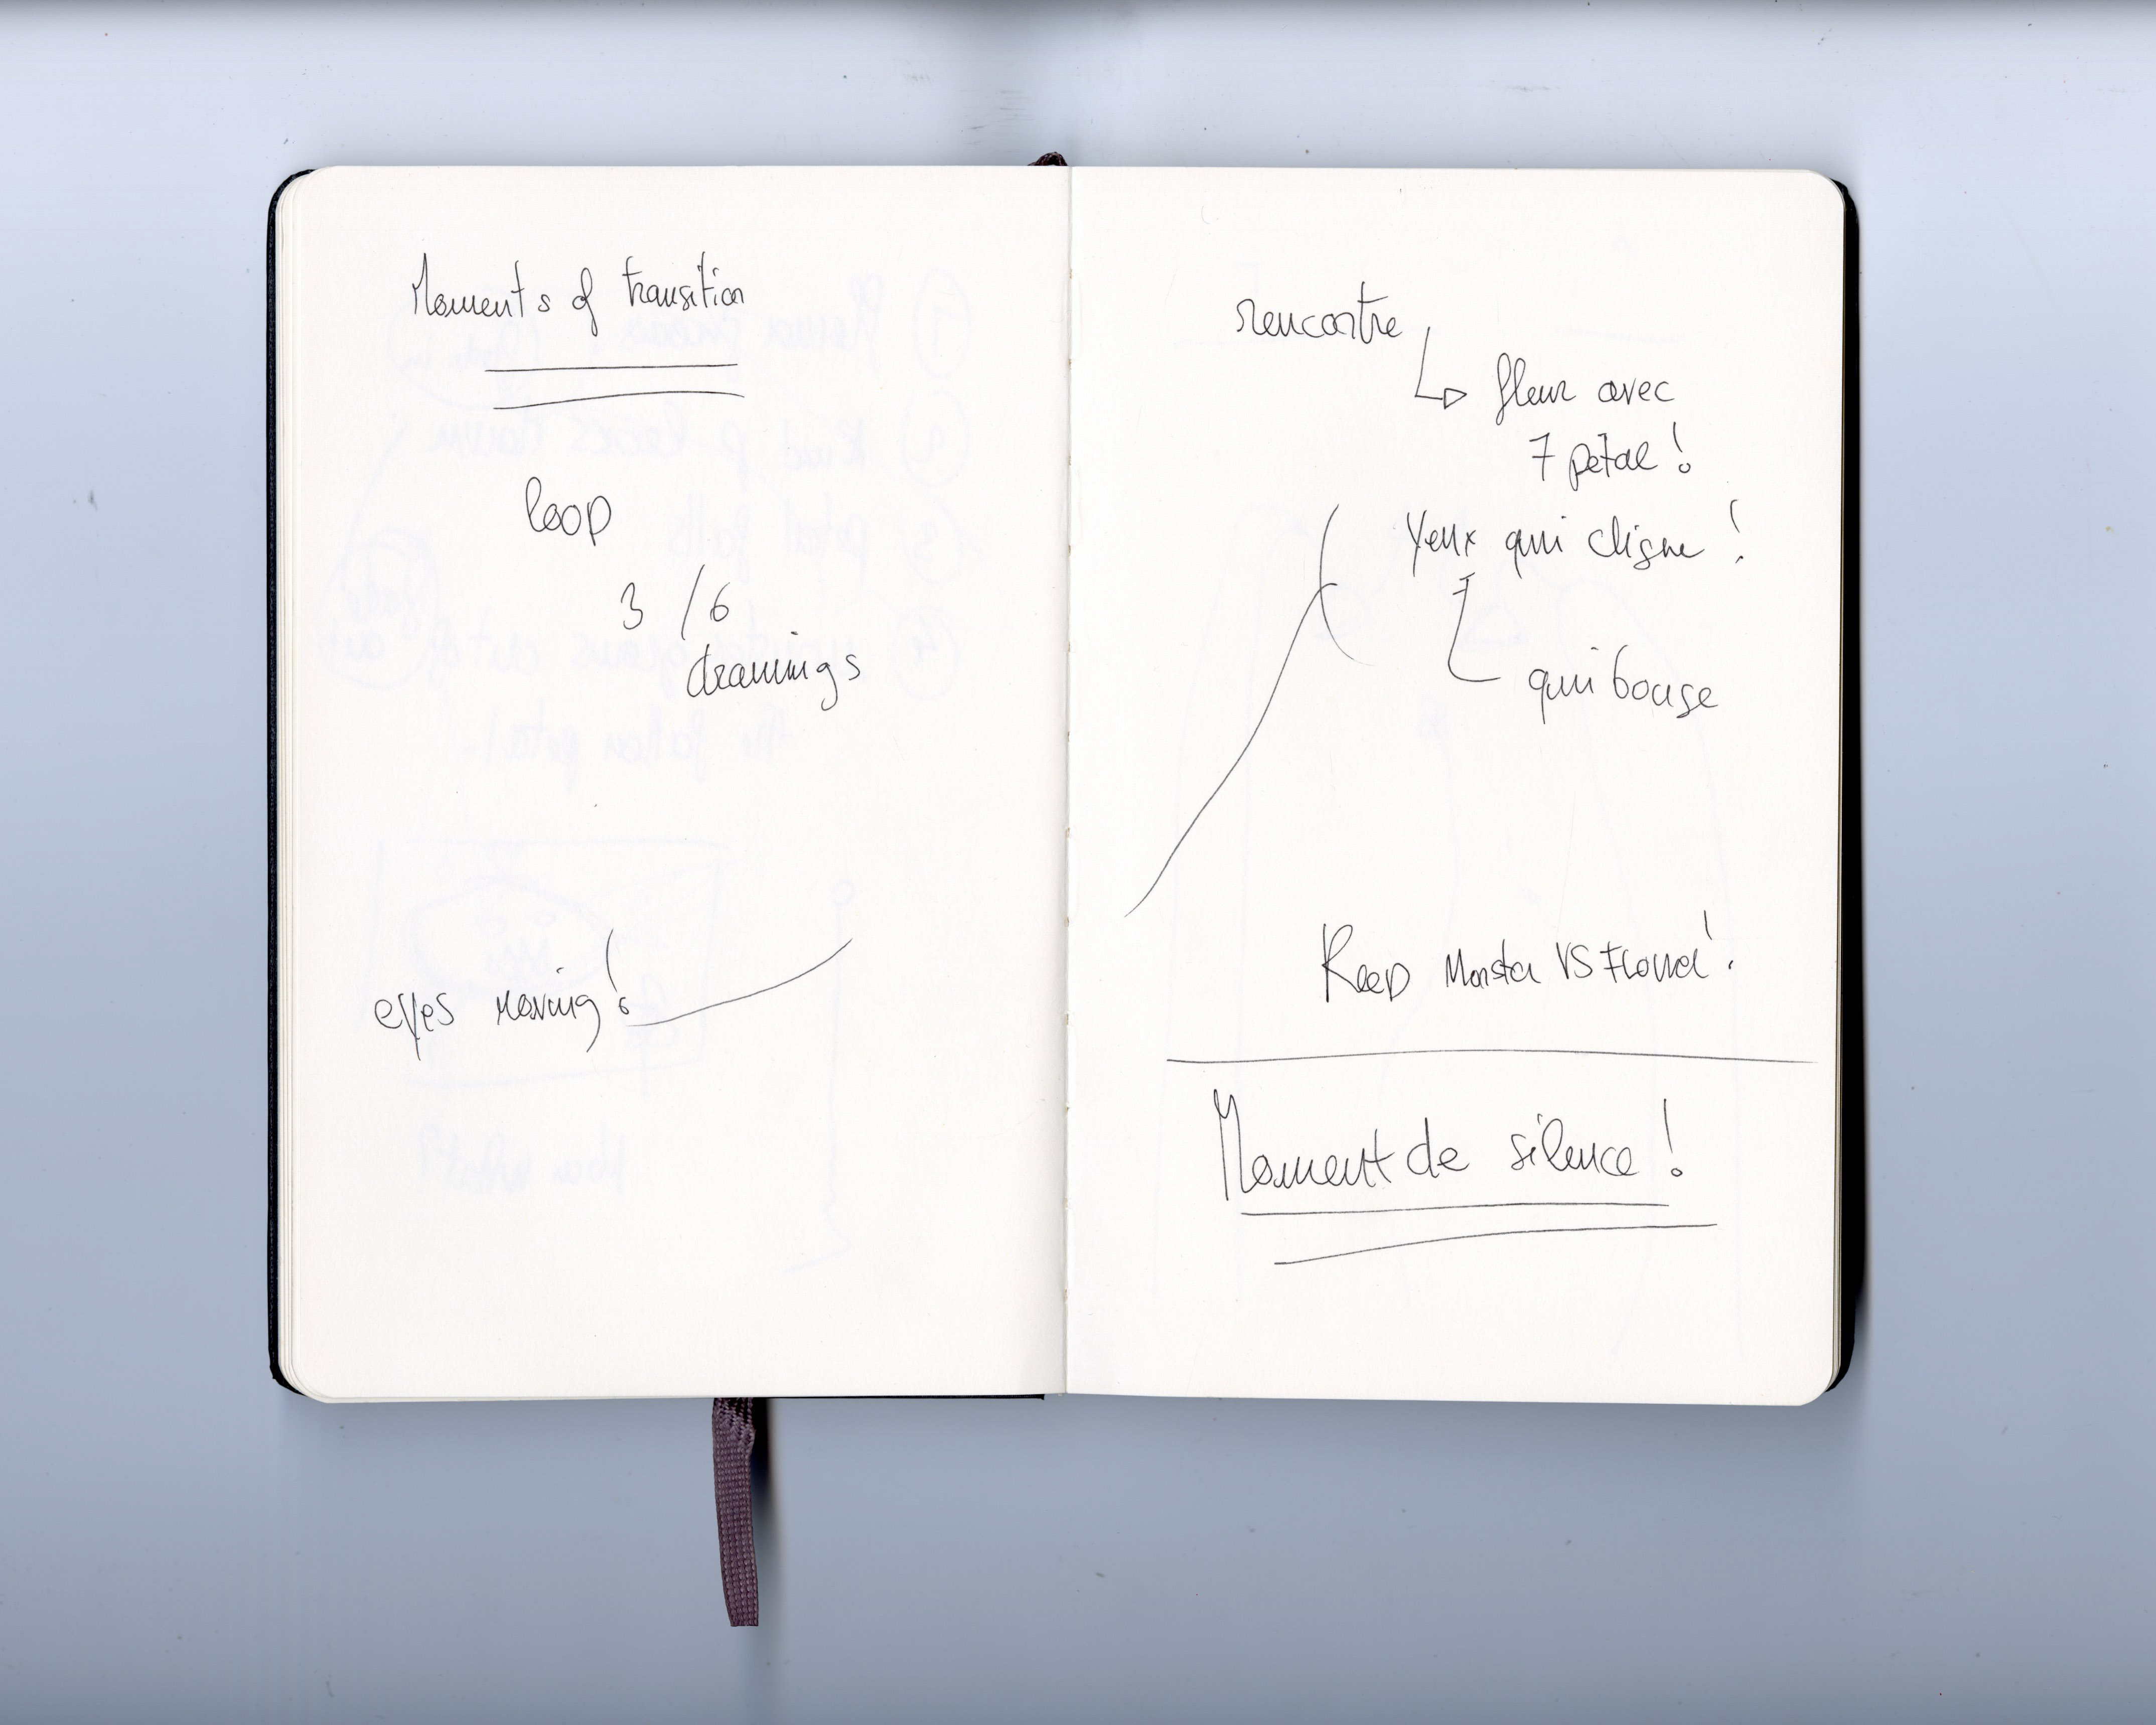 Moments of transition
loop
3 / 6
drawings
eyes moving!
rencontre
fleur avec
7 petal!
Yeux qui cligne!
qui bouge
Keep Monster VS Flower!
Moment de silence!